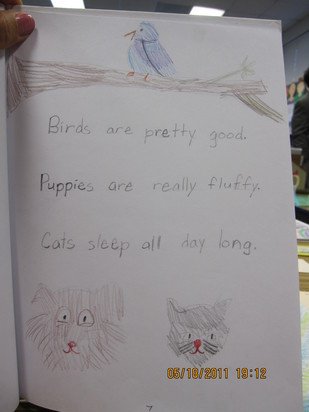 Birds are pretty good.
Puppies are really fluffy.
Cats sleep all day long.
05/10/2011 19:12
7